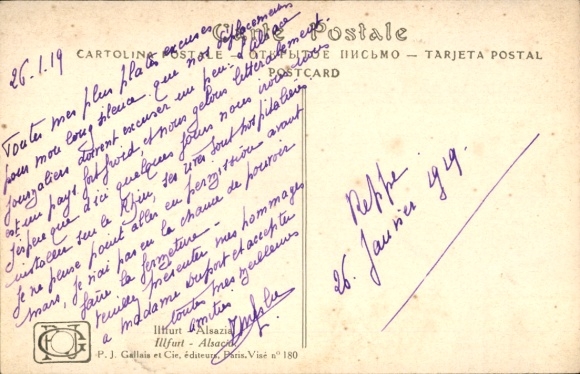 Carte Postale
CARTOLINA POSTALE — ОТКРЫТОЕ ПИСЬМО — TARJETA POSTAL
POSTCARD
26.1.19
Toutes mes plus plates excuses
pour mon long silence que nos déplacements
journaliers doivent excuser un peu. L'Alsace
est un pays fort froid, et nous gelons littéralement.
J'espère que d'ici quelques jours nous irons nous
installer sur le Rhin. Ses rives sont hospitalières.
Je ne pense point aller en permission avant
mars, je n'ai pas eu la chance de pouvoir
faire la fermeture.
Veuillez présenter mes hommages
à madame Duport et accepter
toutes mes meilleures
amitiés
Reppe
26 Janvier 1919.
Illfurt - Alsazia
Illfurt - Alsacia
P. J. Gallais et Cie, éditeurs, Paris. Visé n° 180